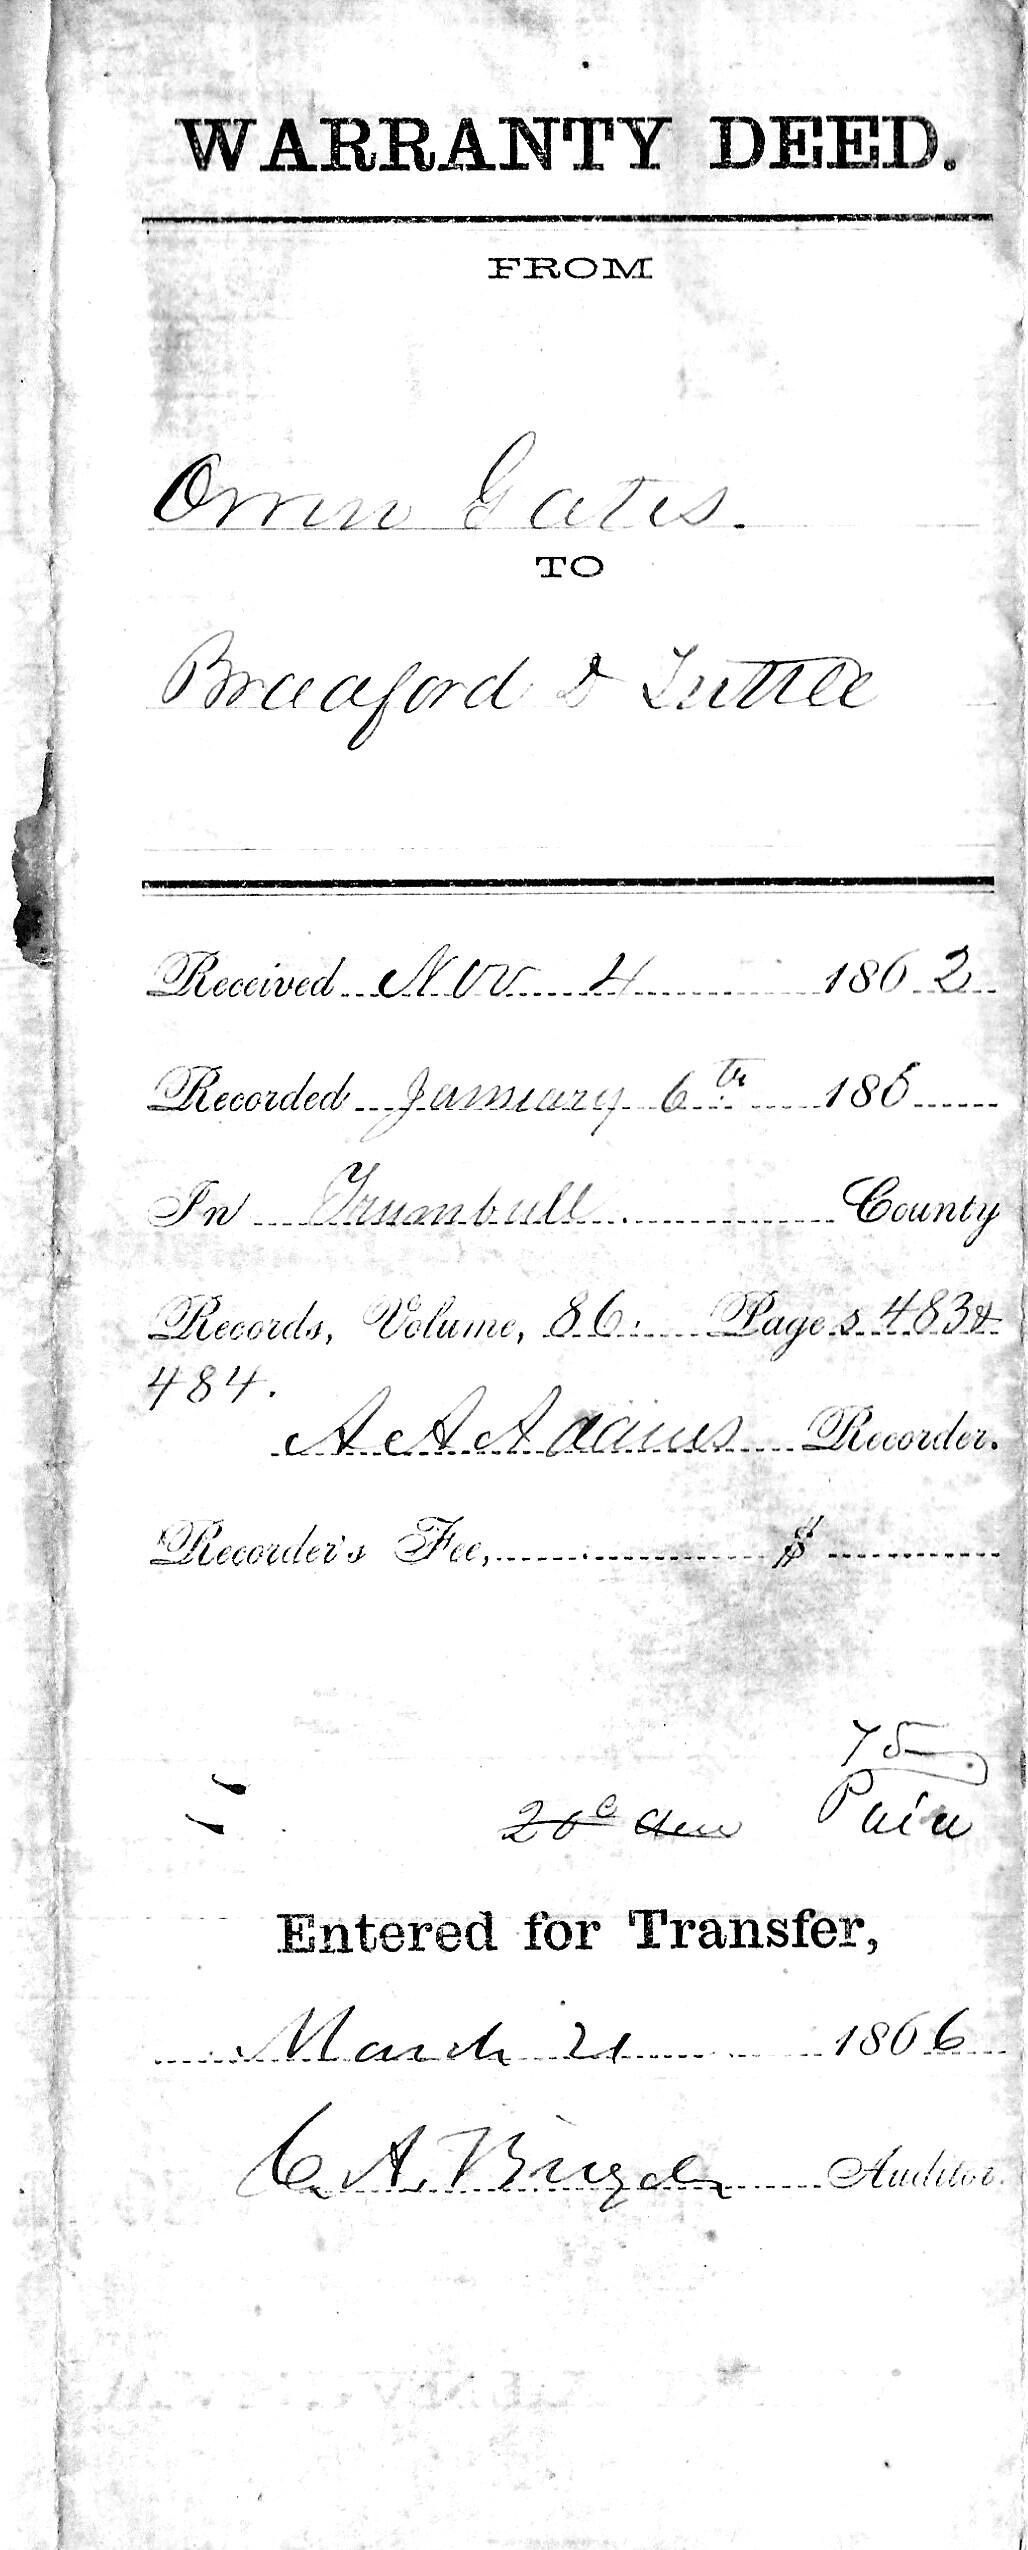 WARRANTY DEED.
FROM
Orrin Gates.
TO
Bradford D Tuttle
Received Nov 4 1862
Recorded January 6th 186
In Trumbull County
Records, Volume, 86. Pages 483 &
484.
A A Adams Recorder.
Recorder's Fee, $
75
20c Paid
Entered for Transfer,
March 21 1866
C. A. Auditor.